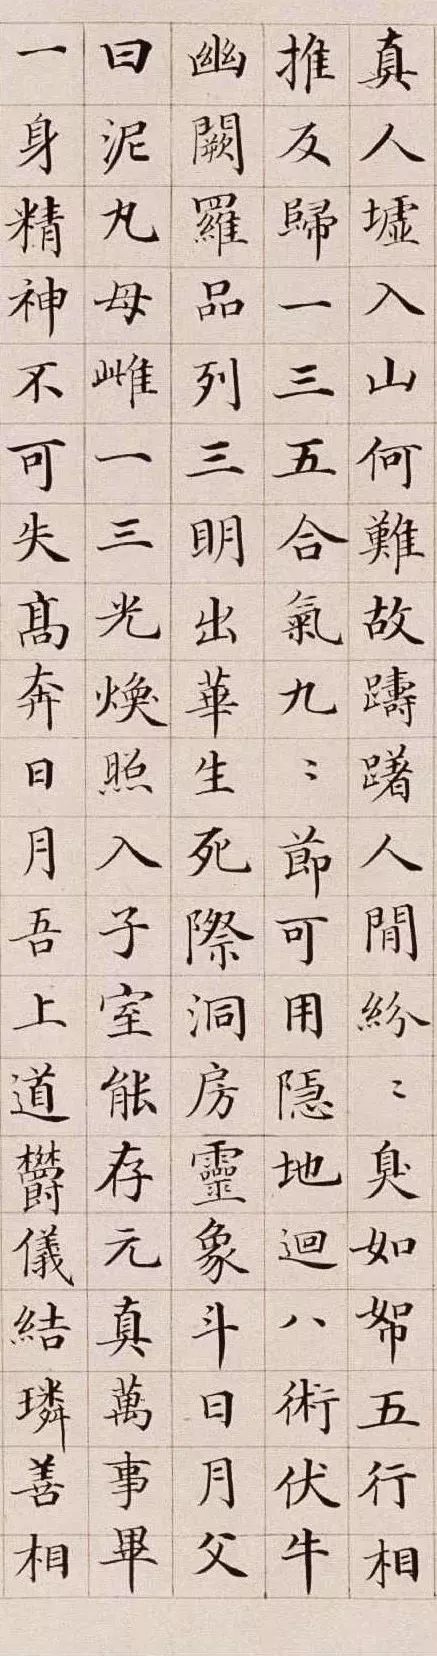 真人墟入山何難故躊躇人間紛〻臭如帤五行相
推反歸一三五合氣九〻節可用隱地迴八術伏牛
幽闕羅品列三明出華生死際洞房靈象斗日月父
曰泥丸母雌一三光煥照入子室能存元真萬事畢
一身精神不可失高奔日月吾上道欝儀結璘善相